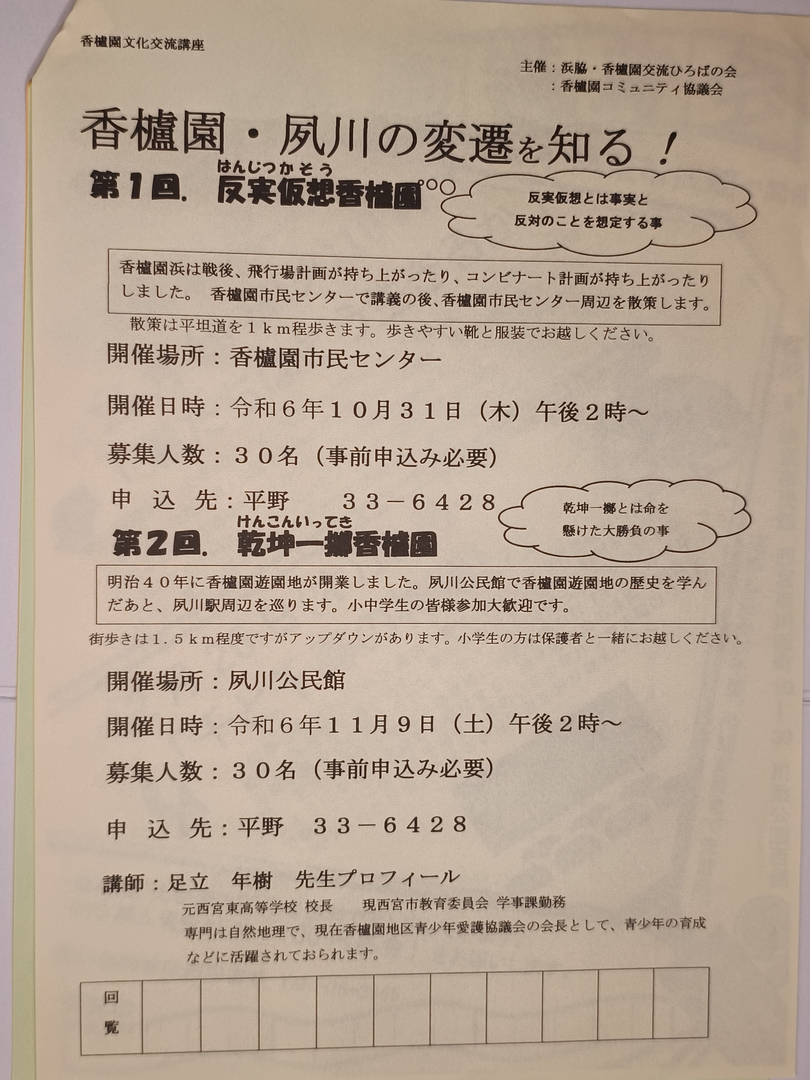 香櫨園文化交流講座
主催：浜脇・香櫨園交流ひろばの会
：香櫨園コミュニティ協議会
香櫨園・夙川の変遷を知る！
はんじつかそう
第１回．反実仮想香櫨園
反実仮想とは事実と
反対のことを想定する事
香櫨園浜は戦後、飛行場計画が持ち上がったり、コンビナート計画が持ち上がったり
しました。　香櫨園市民センターで講義の後、香櫨園市民センター周辺を散策します。
散策は平坦道を１ｋｍ程歩きます。歩きやすい靴と服装でお越しください。
開催場所：香櫨園市民センター
開催日時：令和６年１０月３１日（木）午後２時～
募集人数：３０名（事前申込み必要）
申　込　先：平野　　３３－６４２８
けんこんいってき
第２回．乾坤一擲香櫨園
乾坤一擲とは命を
懸けた大勝負の事
明治４０年に香櫨園遊園地が開業しました。夙川公民館で香櫨園遊園地の歴史を学ん
だあと、夙川駅周辺を巡ります。小中学生の皆様参加大歓迎です。
街歩きは１．５ｋｍ程度ですがアップダウンがあります。小学生の方は保護者と一緒にお越しください。
開催場所：夙川公民館
開催日時：令和６年１１月９日（土）午後２時～
募集人数：３０名（事前申込み必要）
申　込　先：平野　３３－６４２８
講師：足立　年樹　先生プロフィール
元西宮東高等学校 校長　　現西宮市教育委員会 学事課勤務
専門は自然地理で、現在香櫨園地区青少年愛護協議会の会長として、青少年の育成
などに活躍されておられます。
回
覧